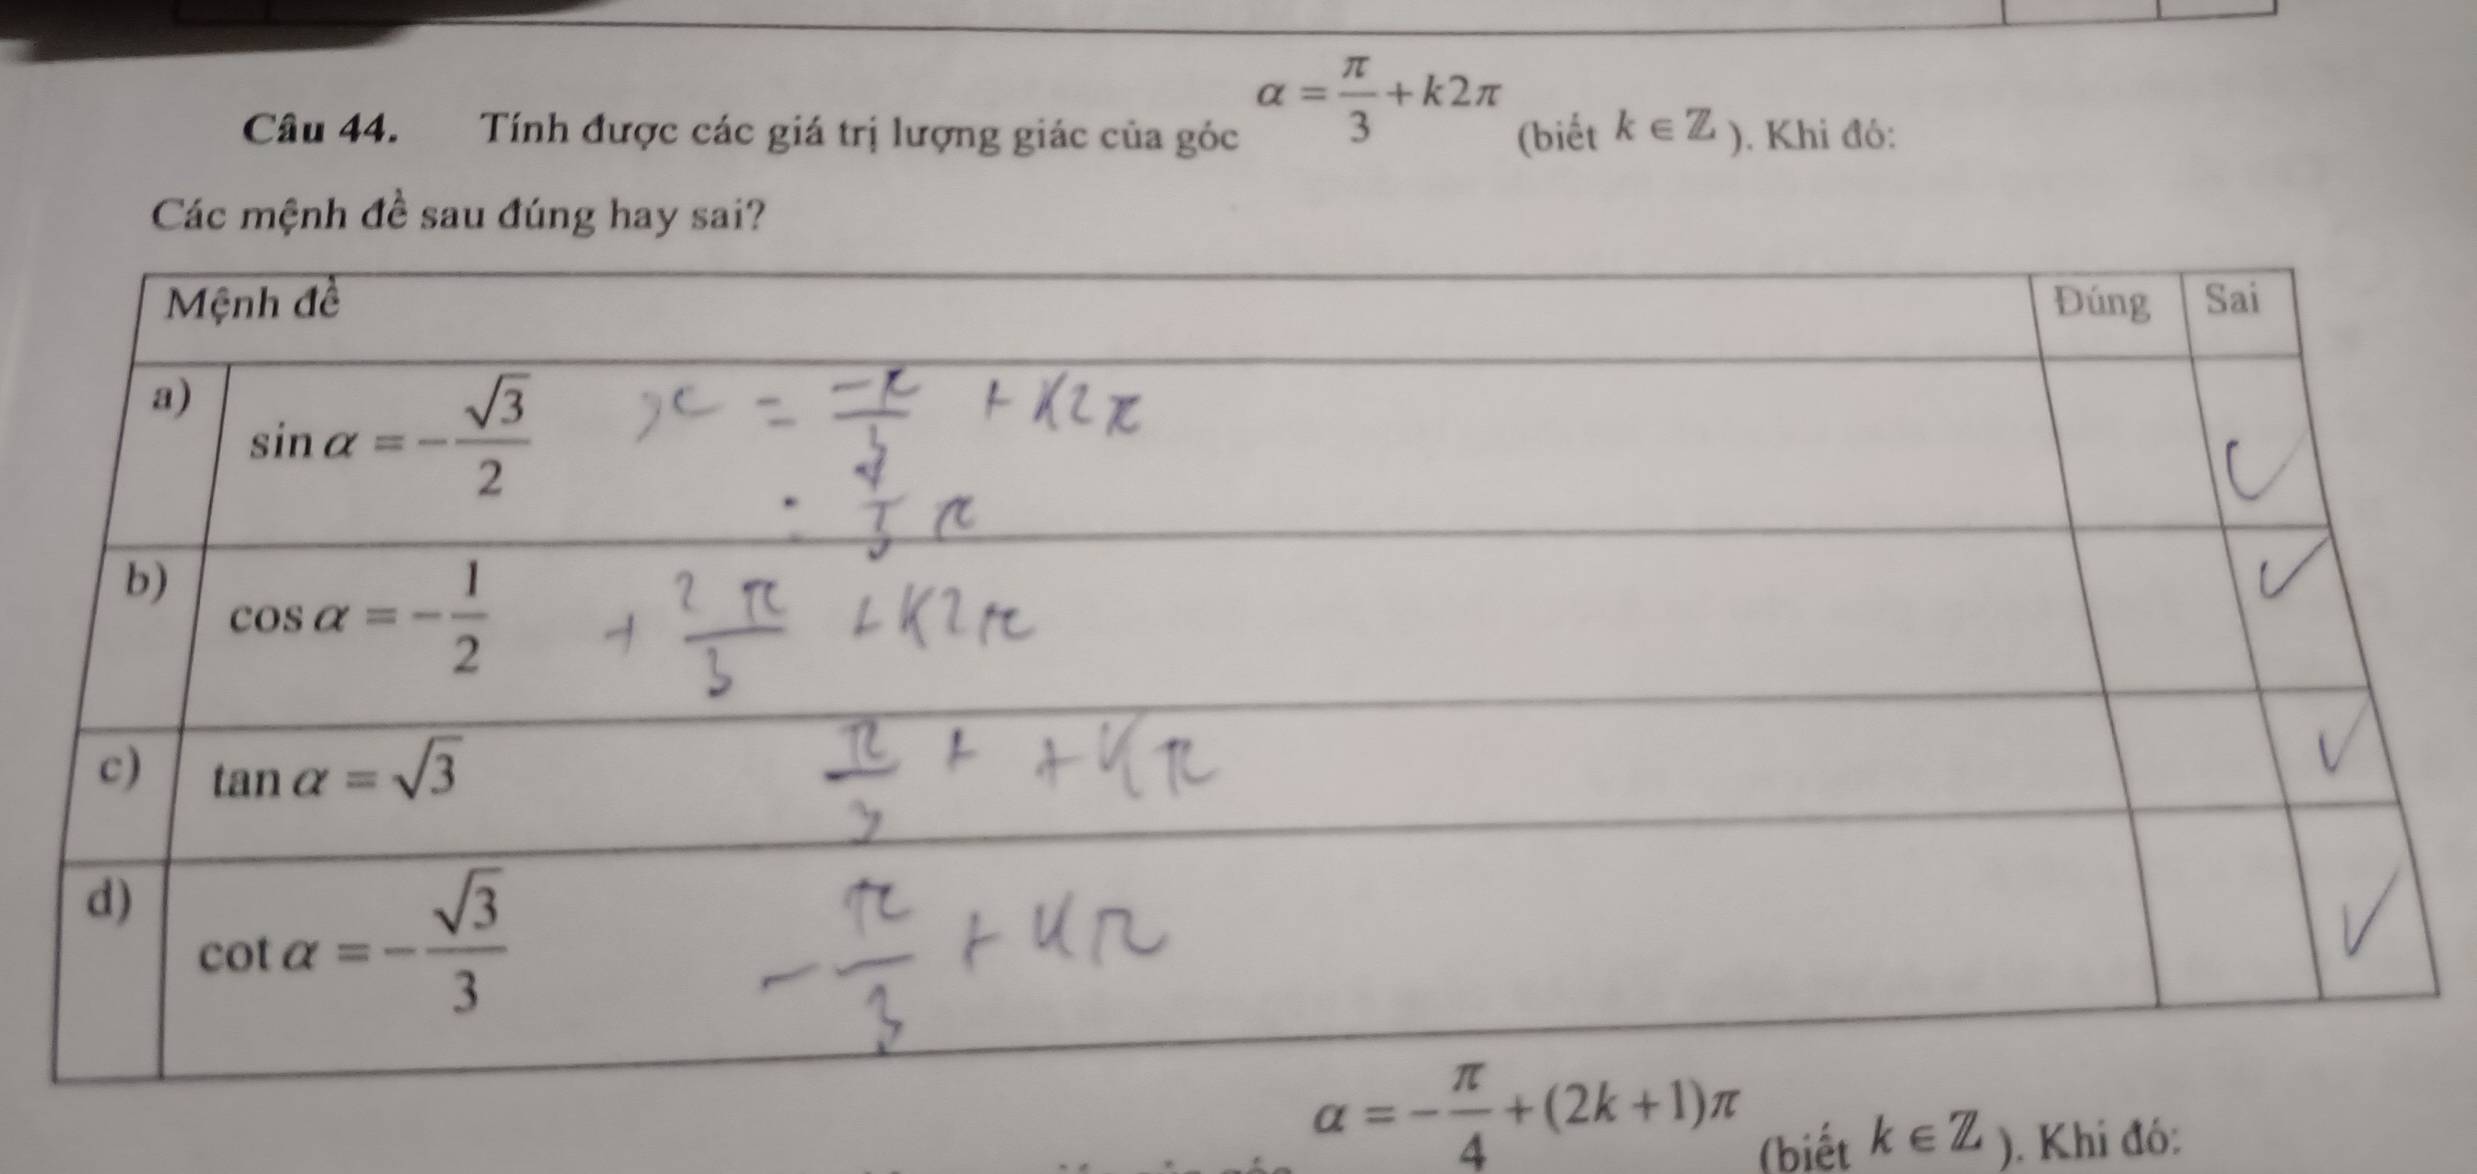 Câu 44. Tính được các giá trị lượng giác của góc α = π/3 + k2π (biết k ∈ ℤ ). Khi đó:
Các mệnh đề sau đúng hay sai?
Mệnh đề Đúng Sai
a) sin α = -√3/2 x = -π/3 + k2π ✓
π
b) cos α = -1/2 + 2π/3 + k2π ✓
c) tan α = √3 π/3 + + kπ ✓
d) cot α = -√3/3 -π/3 + kπ ✓
α = -π/4 + (2k+1)π (biết k ∈ ℤ ). Khi đó: